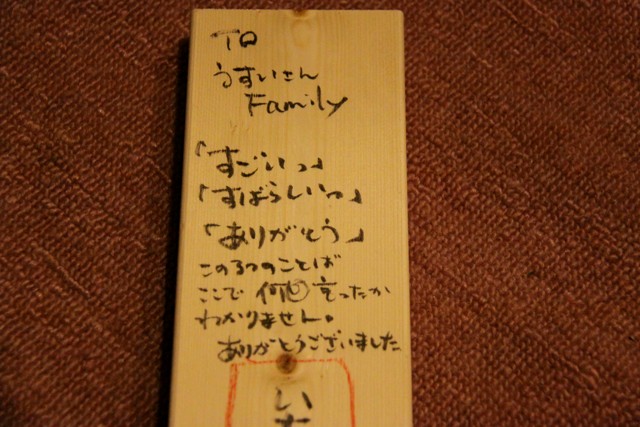 TO
うすいさん
Family
「すごいっ」
「すばらしいっ」
「ありがとう」
この3つのことば
ここで 何回言ったか
わかりません。
ありがとうございました
い